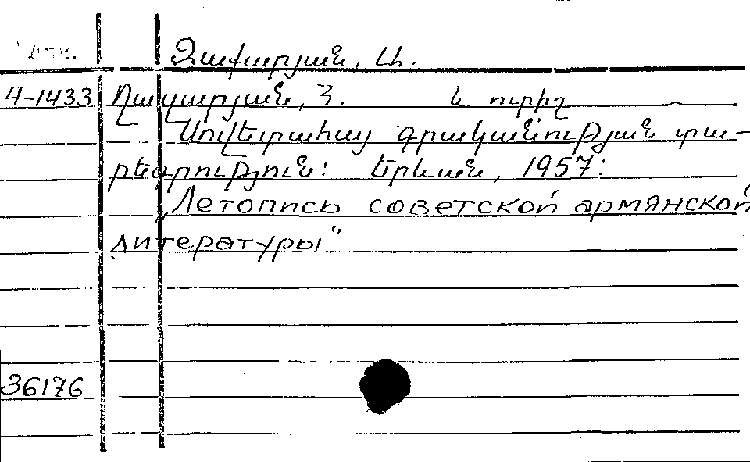 Զաքարյան, Ա.
4-1433 Ղազարյան, Հ. և ուրիշ
Սովետահայ գրականության տա-
րեգրություն: Երևան, 1957:
„Летопись советской армянской
литературы"
36176